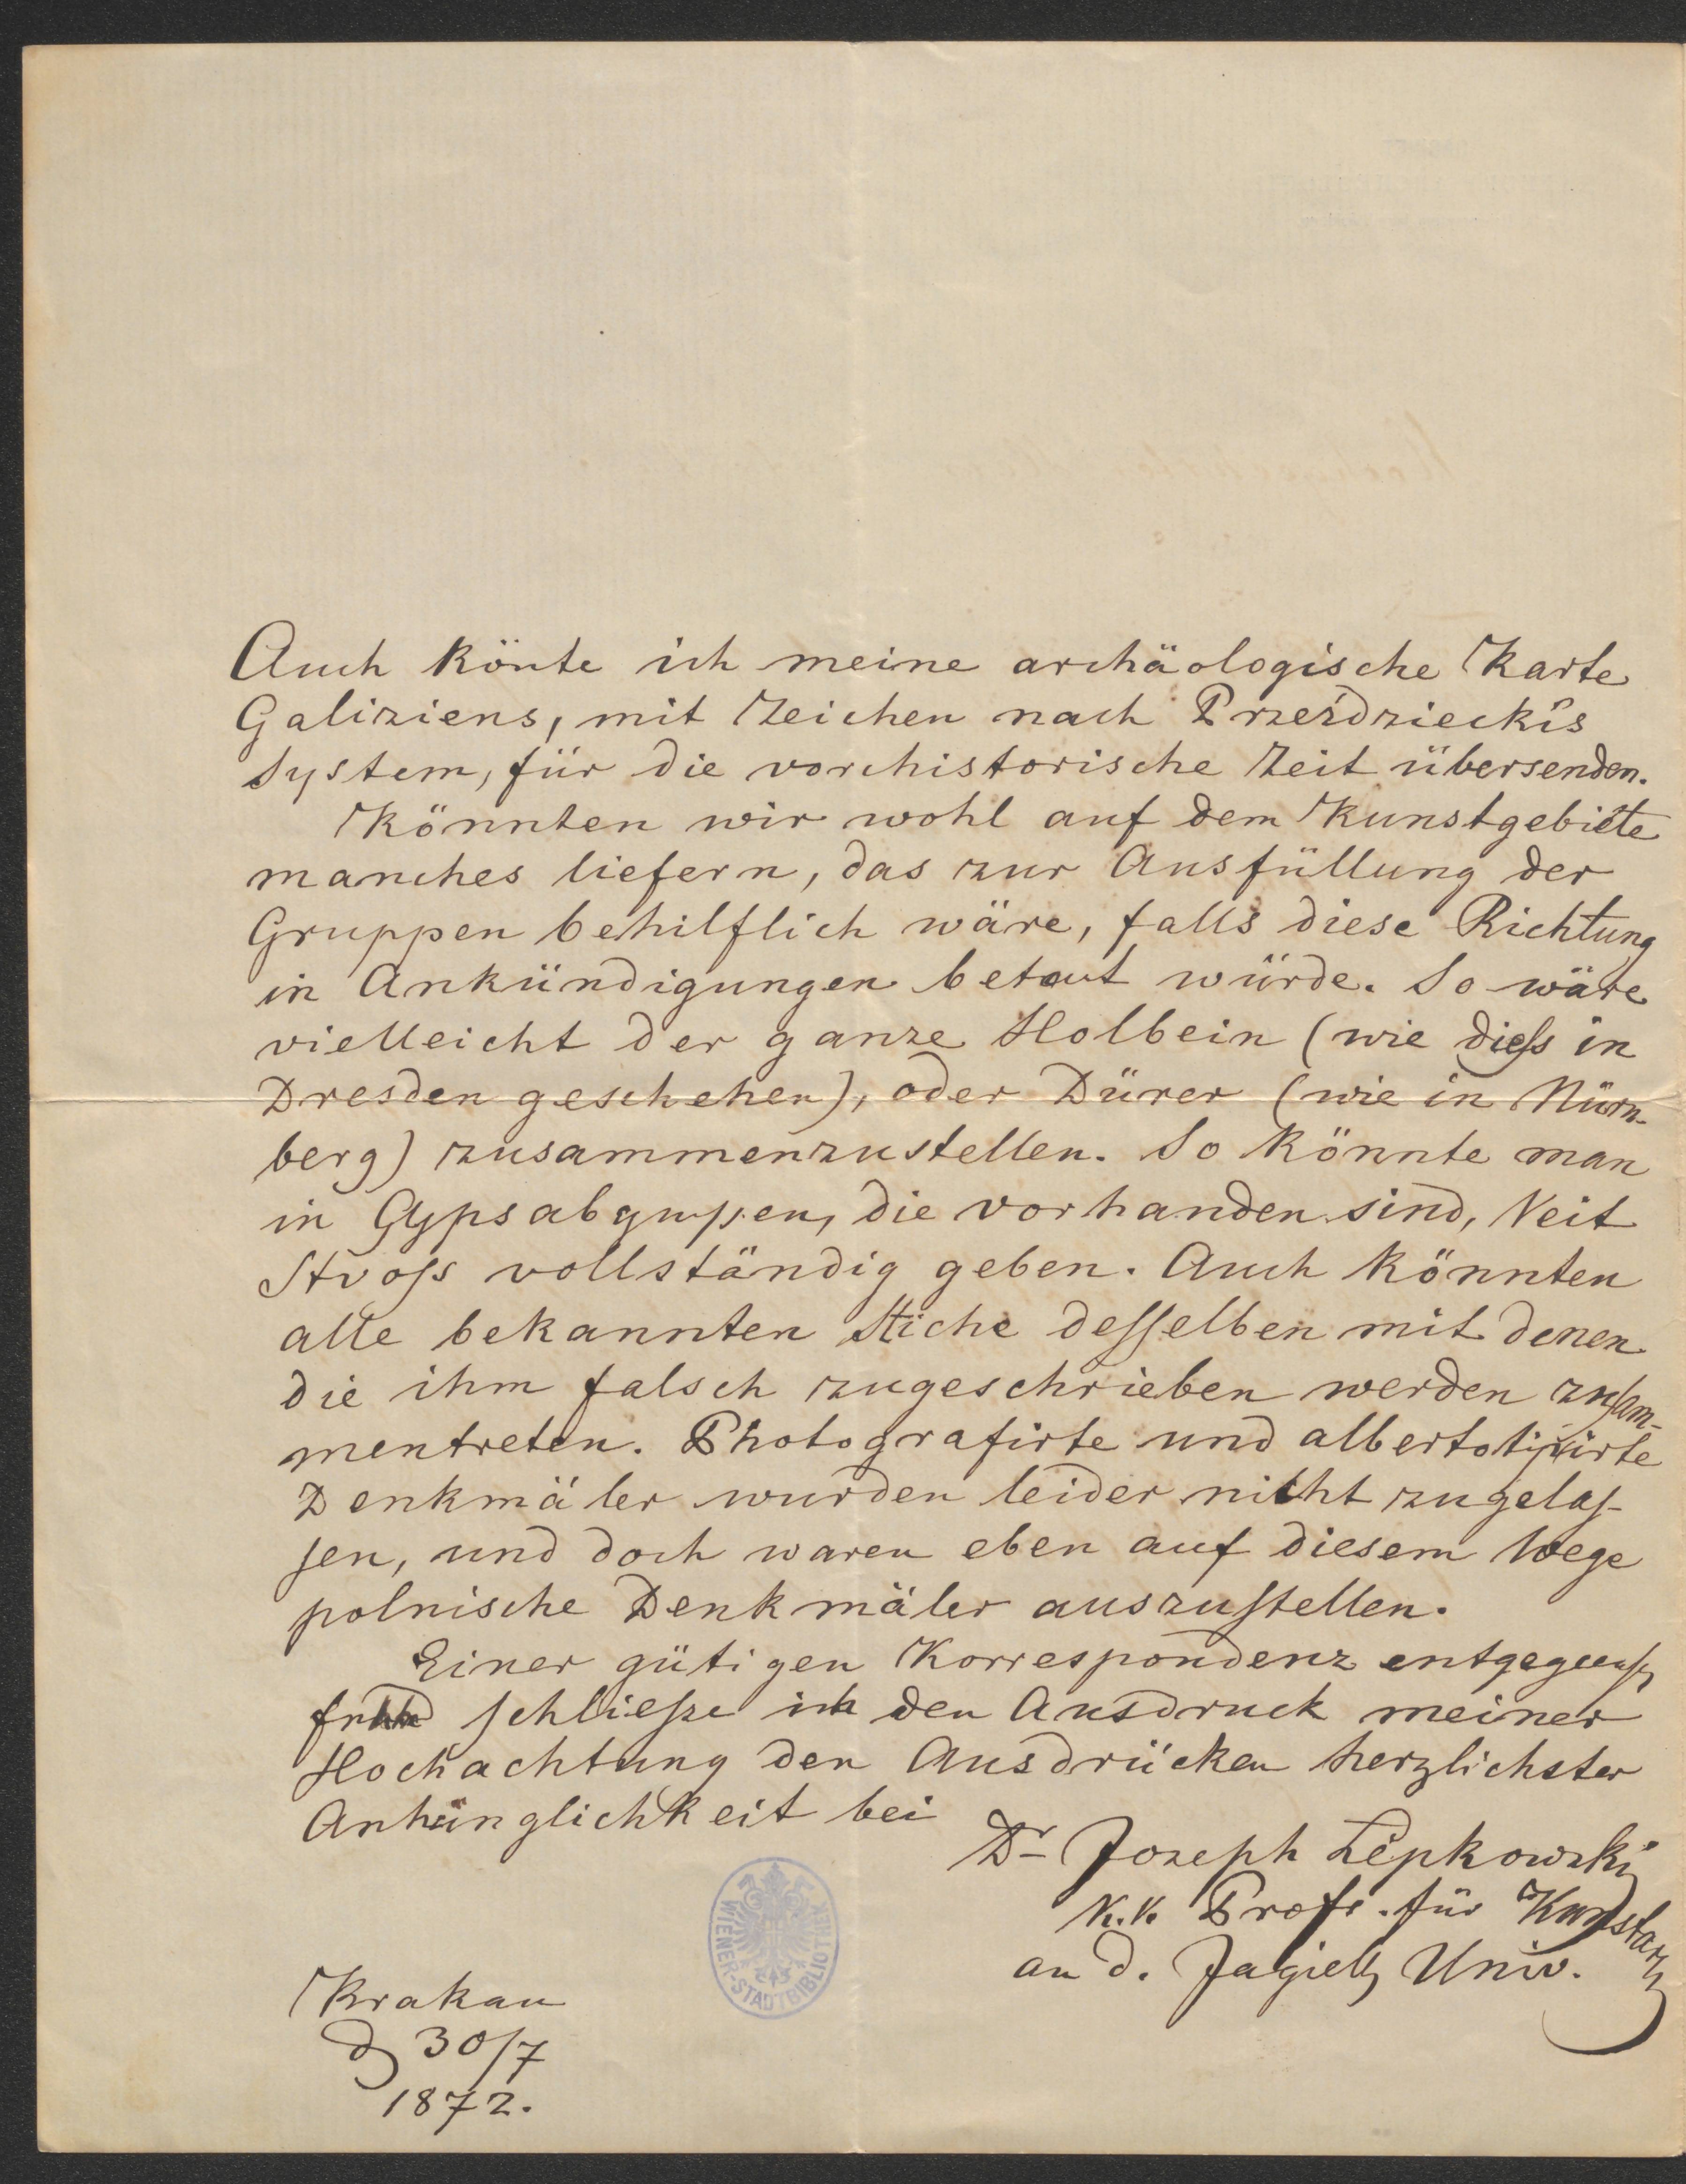 Auch könte ich meine archäologische Karte
Galiziens, mit Zeichen nach Przezdzieckis
System, für die vorchistorische Zeit übersenden.
Könnten wir wohl auf dem Kunstgebiete
manches liefern, das zur Ausfüllung der
Gruppen behilflich wäre, falls diese Richtung
in Ankündigungen betont würde. So wäre
vielleicht der ganze Holbein (wie dieſs in
Dresden geschehen), oder Dürer (wie in Nürn-
berg) zusammenzustellen. So könnte man
in Gypsabguſsen, die vorhanden sind, Veit
Stvoſs vollständig geben. Auch könnten
alle bekannten Stiche deſſelben mit denen
die ihm falsch zugeschrieben werden zuſam-
mentreten. Photografirte und albertotipirte
Denkmäler wurden leider nicht zugelaſ-
ſen, und doch waren eben auf diesem Wege
polnische Denkmäler auszuſtellen.
Einer gütigen Korrespondenz
ſchlieſze ich den Ausdruck meiner
Hochachtung den Ausdrücken herzlichster
Anhänglichkeit bei
Dr Joseph Łepkowski
K.K. Profs. für Kunstarz
an d. Jagiell Univ.
WIENER-STADTBIBLIOTHEK
Krakau
d 30/7
1872.